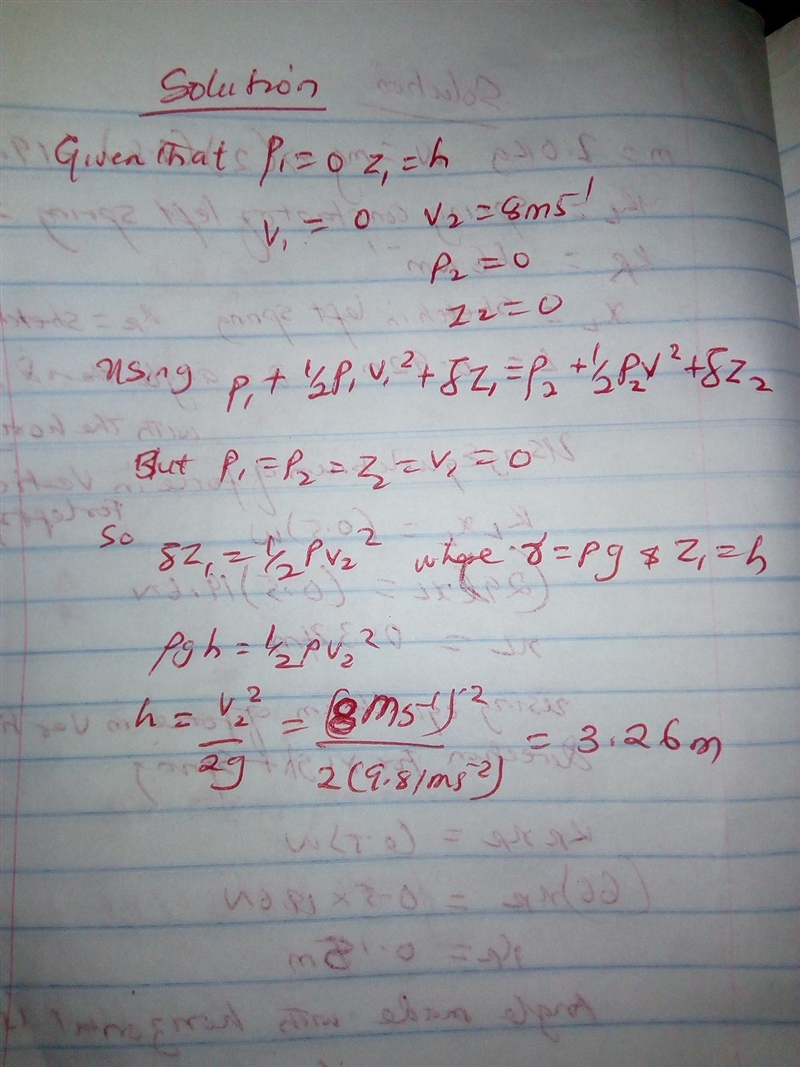 Solution
Given that P₁ = 0 Z₁ = h
V₁ = 0 V₂ = 8ms⁻¹
P₂ = 0
Z₂ = 0
Using P₁ + ½ρ₁V₁² + γZ₁ = P₂ + ½ρ₂V² + γZ₂
But P₁ = P₂ = Z₂ = V₂ = 0
So γZ₁ = ½ρV₂² where γ = ρg & Z₁ = h
ρgh = ½ρV₂²
h = V₂²/2g = (8ms⁻¹)²/2(9.81ms⁻²) = 3.26m